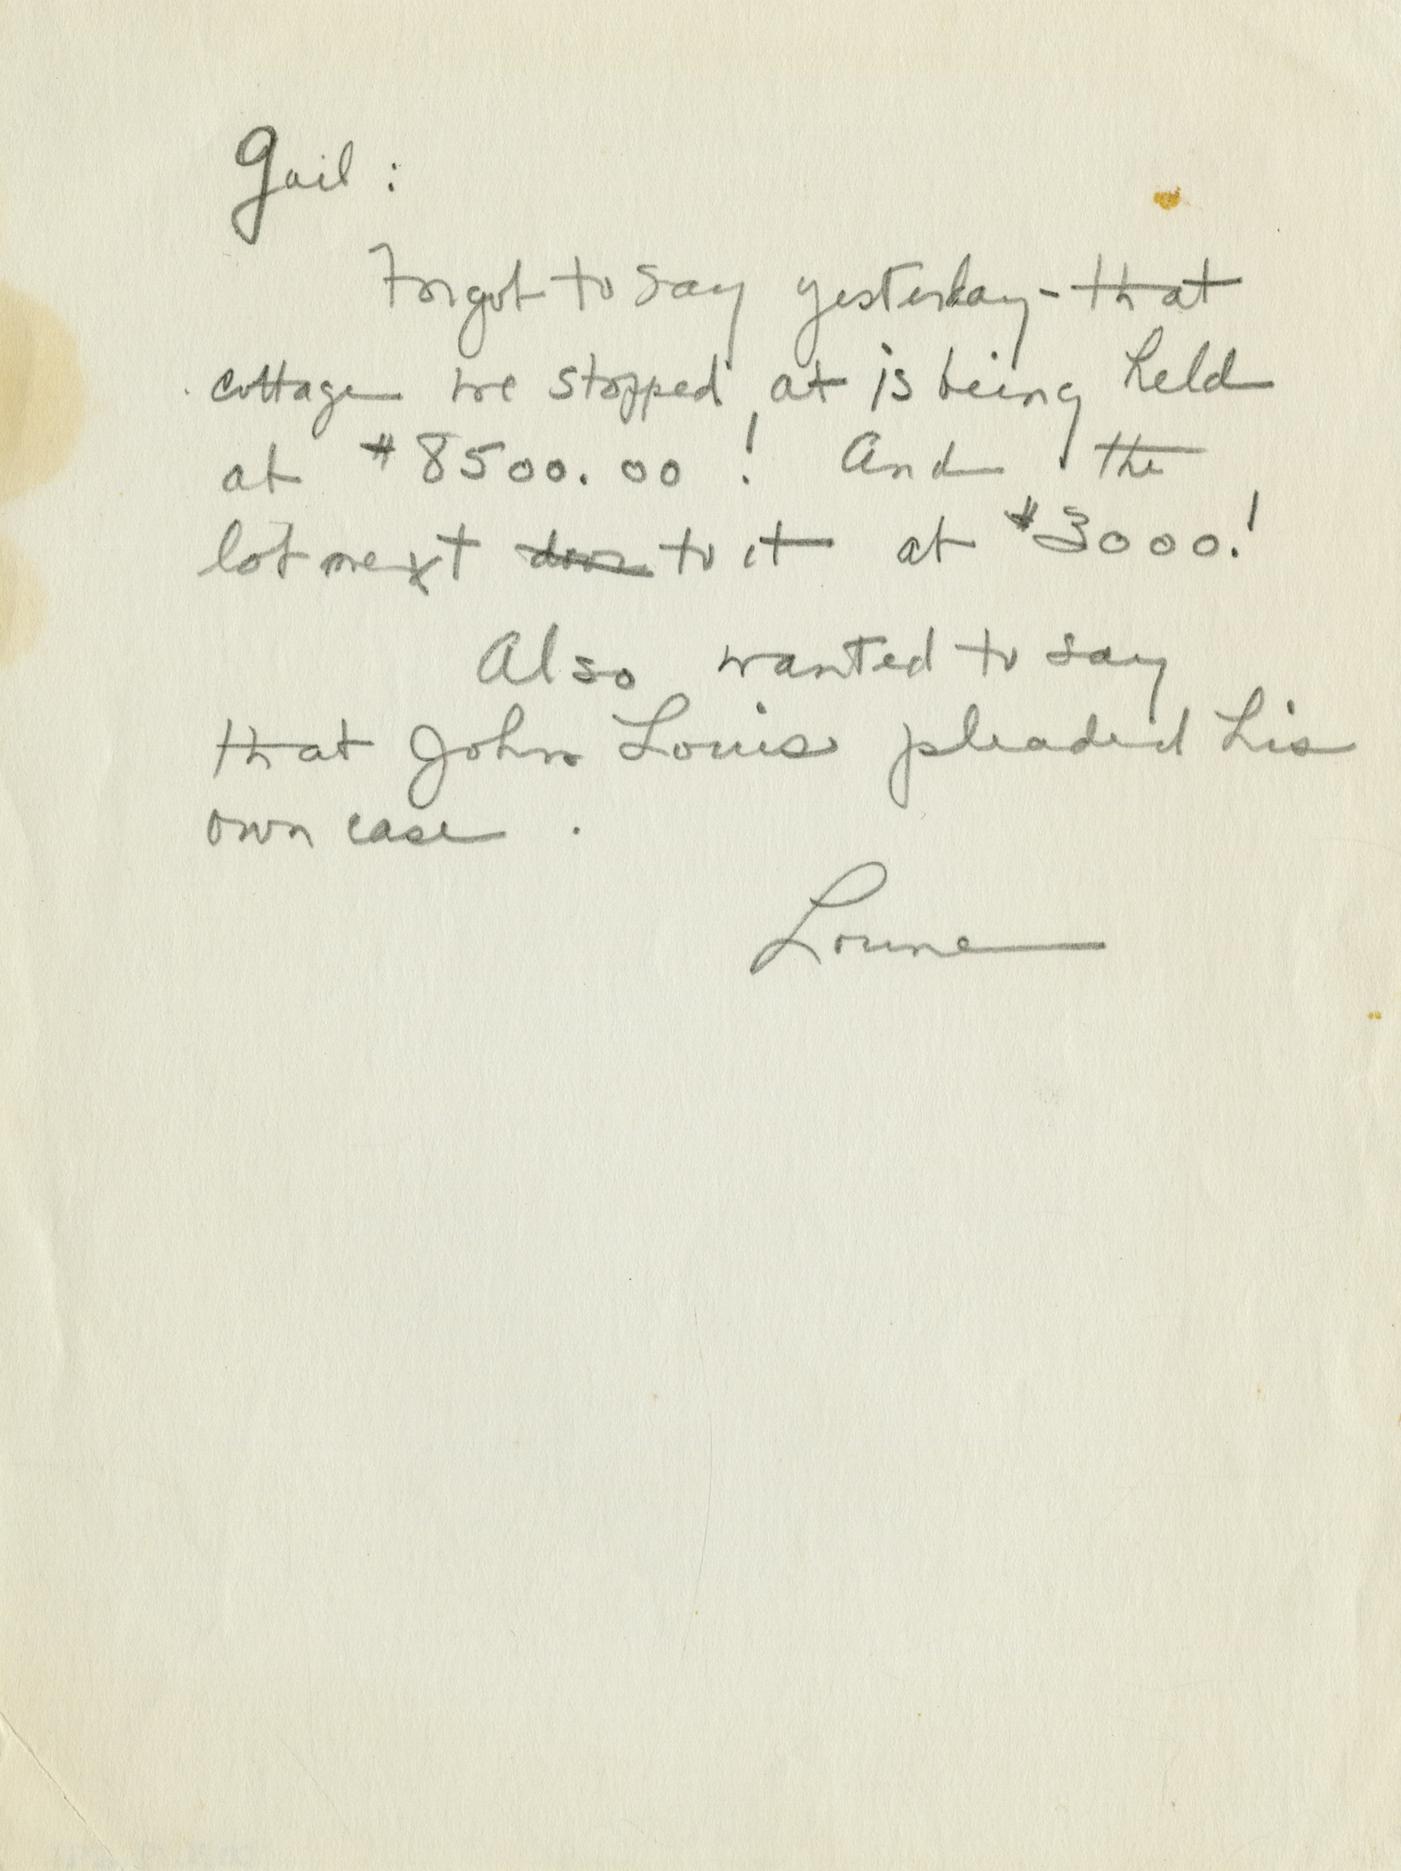 Gail :
Forgot to say yesterday - that
cottage we stopped at is being held
at $8500.00 ! And the
lot next door to it at $3000.!
Also wanted to say
that John Louis pleaded his
own case .